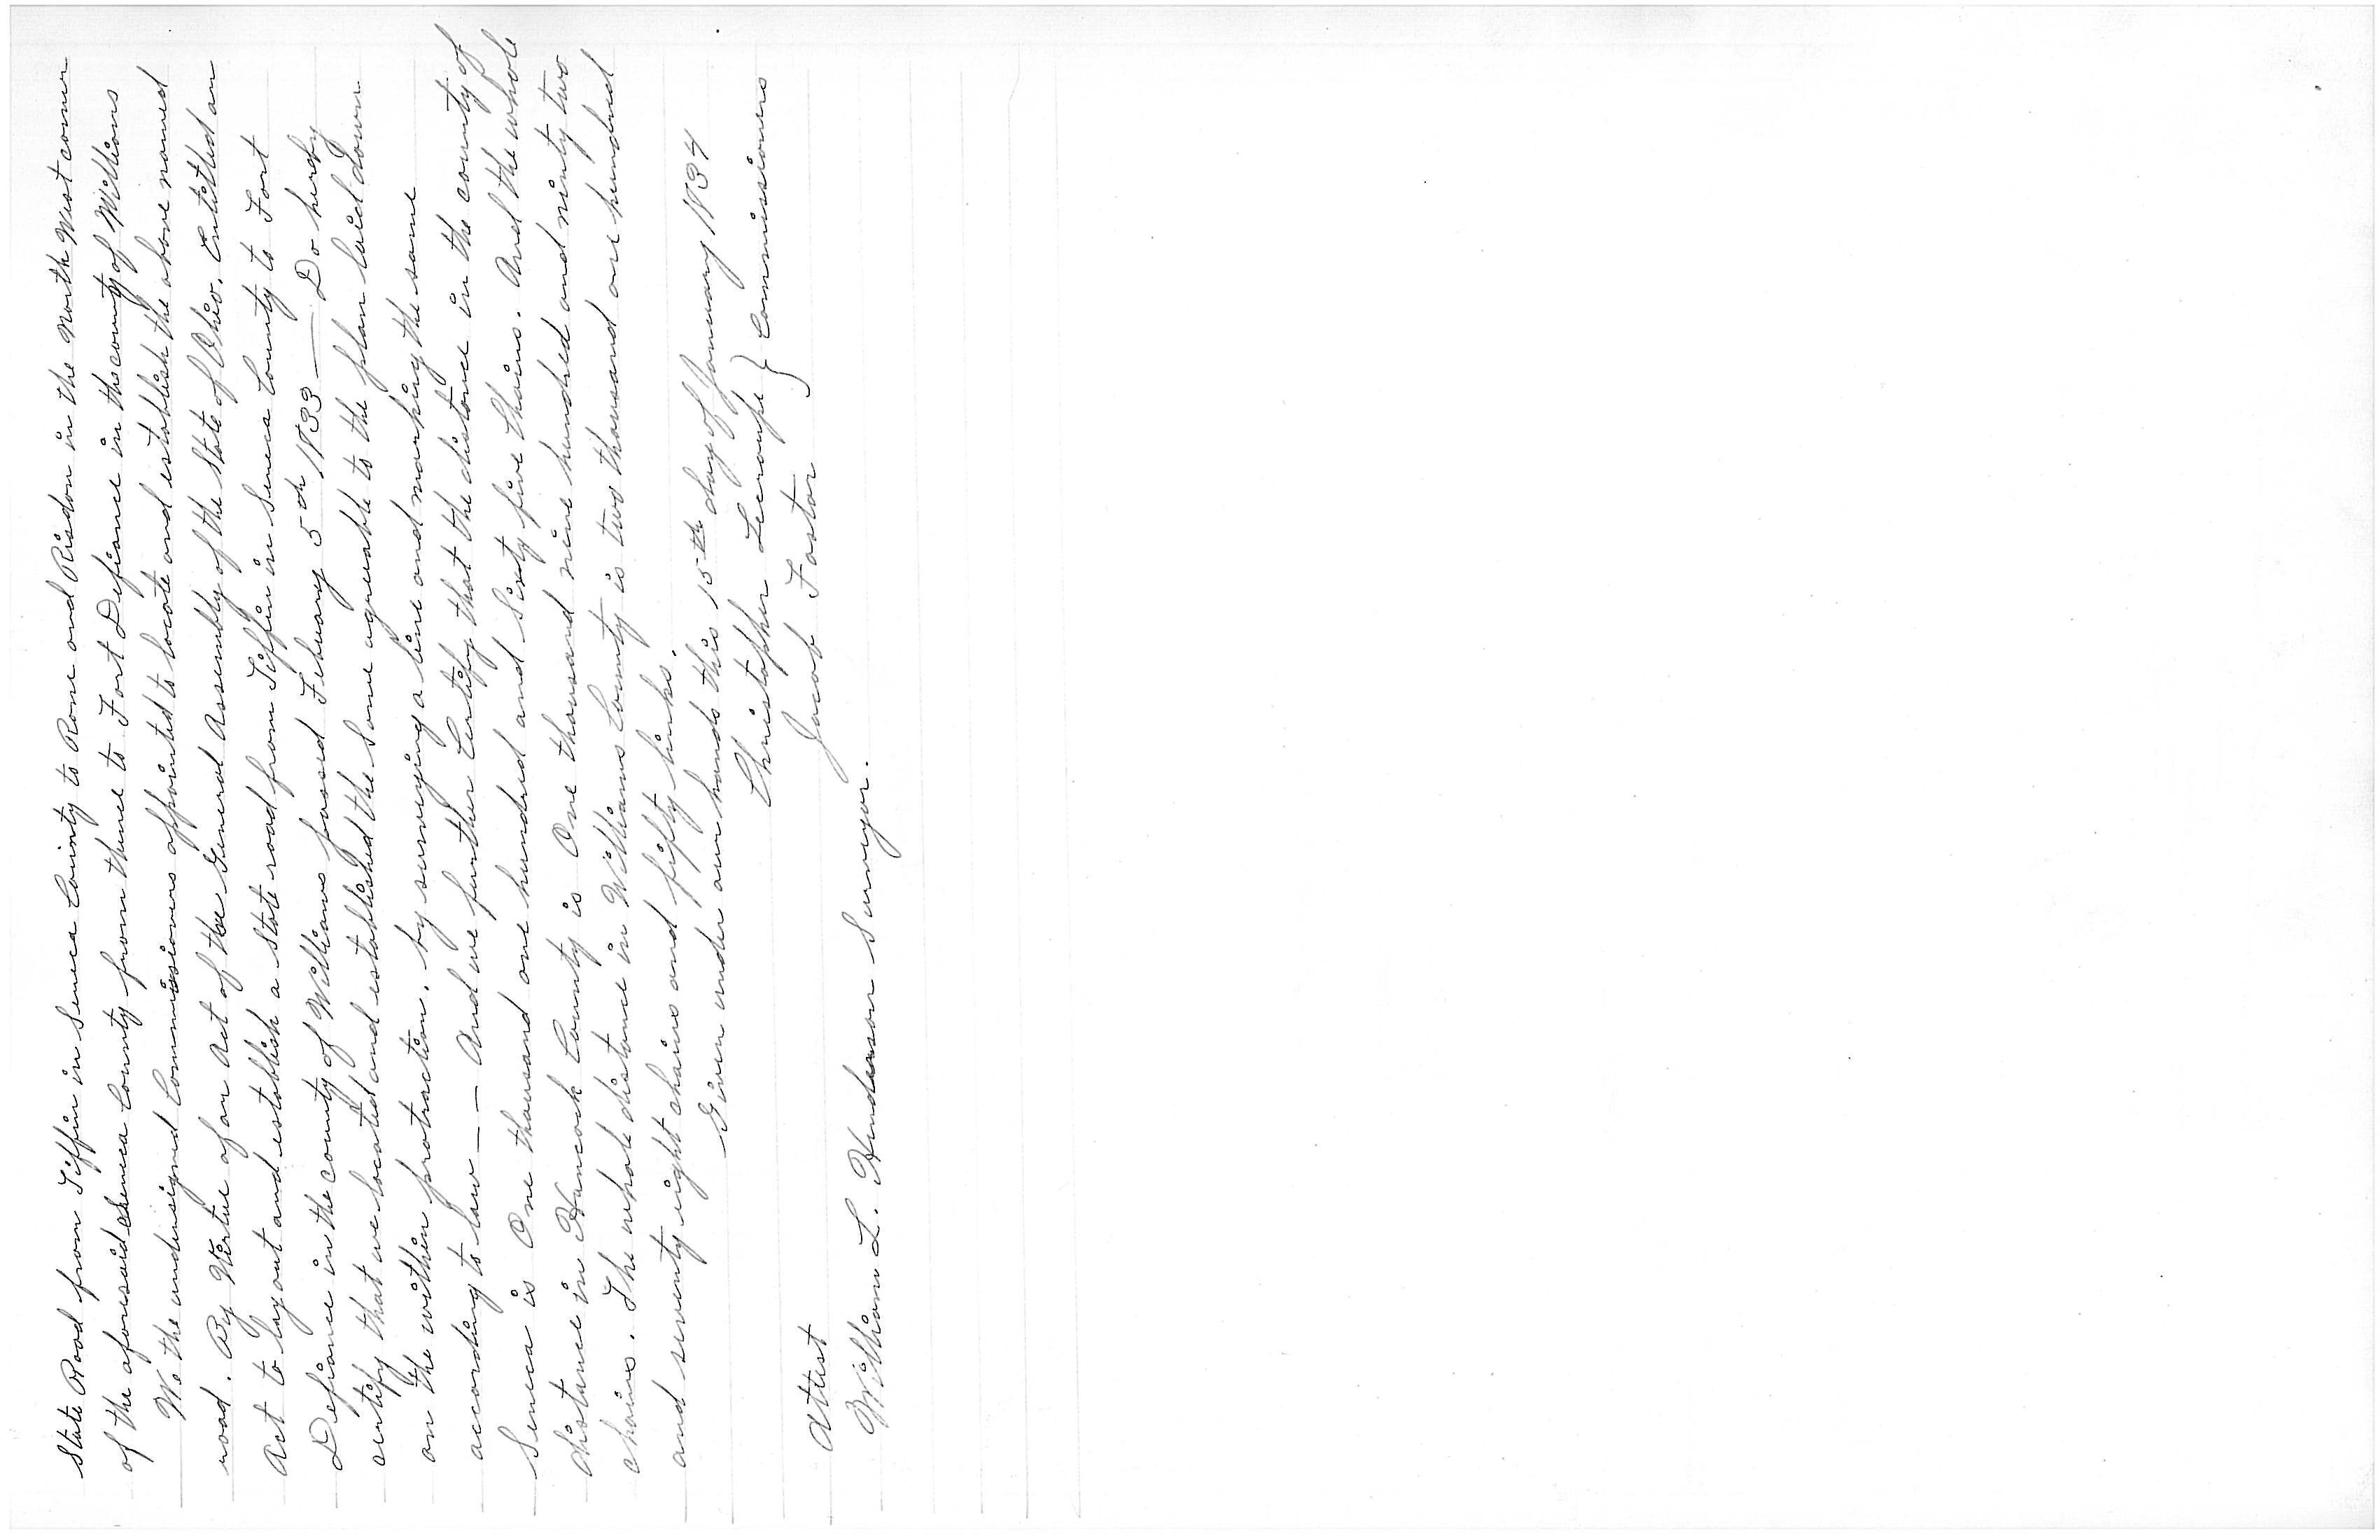 State Road from Tiffin in Seneca County to Rome and Risdon in the North West corner
of the aforesaid Seneca County from thence to Fort Defiance in the county of Williams
We the undersigned Commissioners appointed to locate and establish the above named
road. By Virtue of an Act of the General Assembly of the State of Ohio. Entitled an
Act to lay out and establish a State road from Tiffin in Seneca County to Fort
Defiance in the county of Williams passed February 5th 1833 — Do hereby
certify that we located and established the same agreeable to the plan laid down
on the within protraction. by surveying a line and marking the same
according to law — — And we further Certify that the distance in the county of
Seneca is One thousand one hundred and Sixty five Chains. And the whole
distance in Hancock County is One thousand nine hundred and ninty two
chains. The whole distance in Williams County is two thousand one hundred
and seventy eight chains and fifty links.
Given under our hands this 15th day of January 1834
Christopher Lecroupe } Commissioners
Jacob Foster
Attest
William L. Henderson Surveyor.